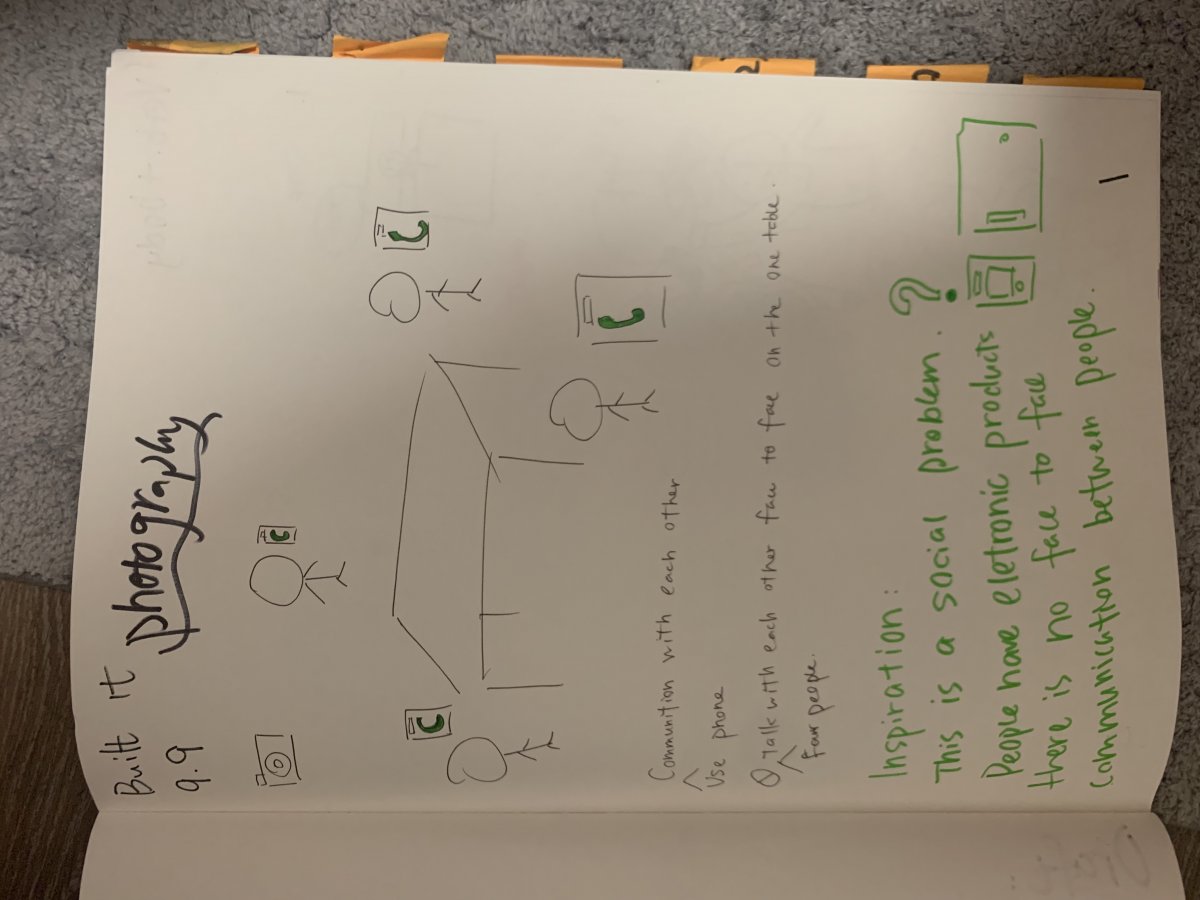 Built it photography
9.9
Communition with each other
Use phone
Talk with each other face to face on the one table.
Four people.
Inspiration:
This is a social problem.?
People have eletronic products
there is no face to face
Communication between people.
1